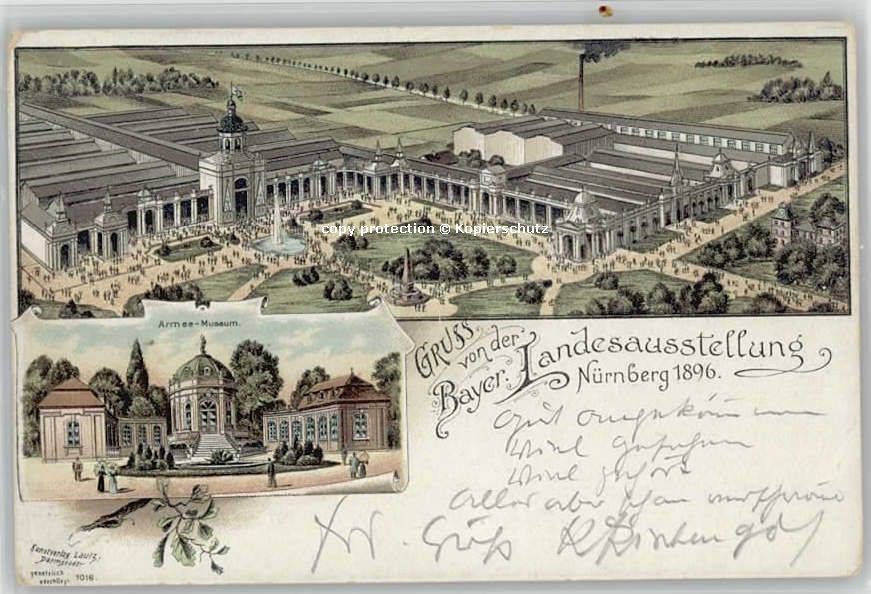 copy protection © Kopierschutz
Armee-Museum.
Gruss
von der
Bayer. Landesausstellung
Nürnberg 1896.
Gut angekommen
Viel gesehen
Viel gehört
Alles aber schon
Gruß
Kunstverlag Lautz,
Darmstadt
gesetzlich
geschützt 1016.